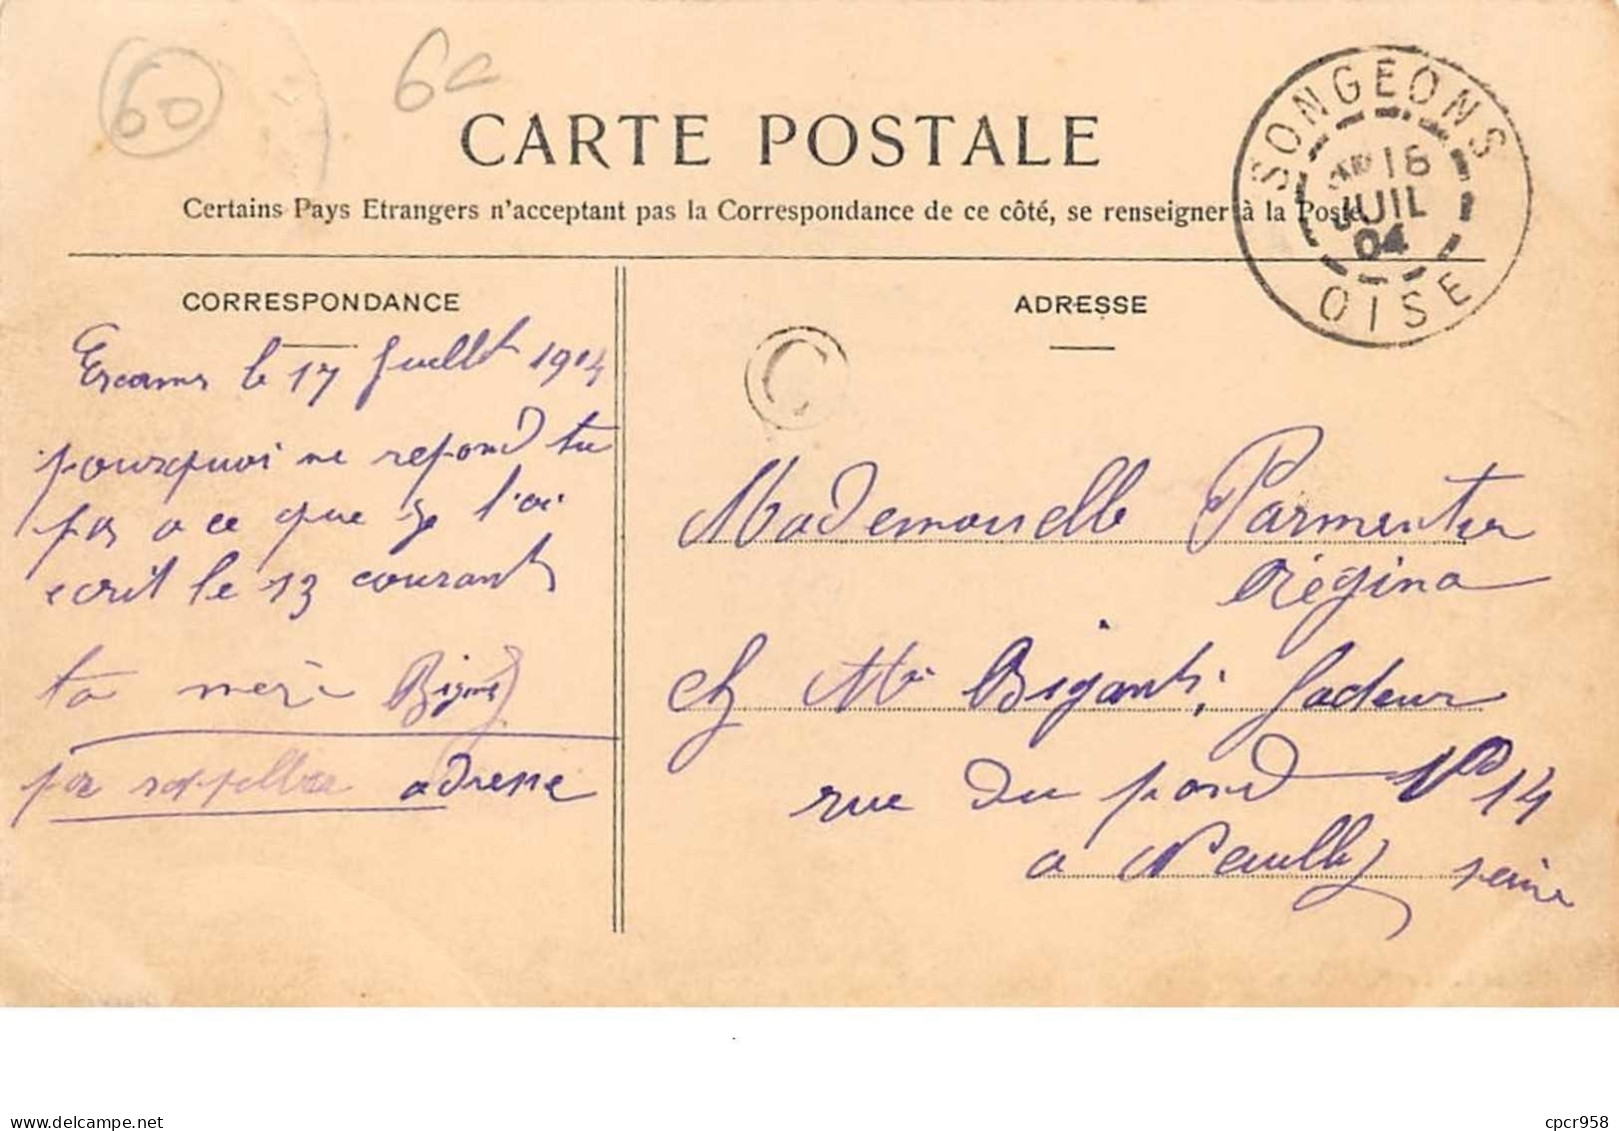 60
60
CARTE POSTALE
Certains Pays Etrangers n'acceptant pas la Correspondance de ce côté, se renseigner à la Poste.
SONGEONS
16
JUIL
04
OISE
CORRESPONDANCE
ADRESSE
le 17 Juillet 1904
C
pourquoi ne repond tu
pas a ce que je t'ai
ecrit le 13 courant
ta mère
adresse
Mademoiselle Parmentier
Régina
ch Mr Bigant, facteur
rue du pond No 14
a Neuilly seine
www.delcampe.net
cpcr958